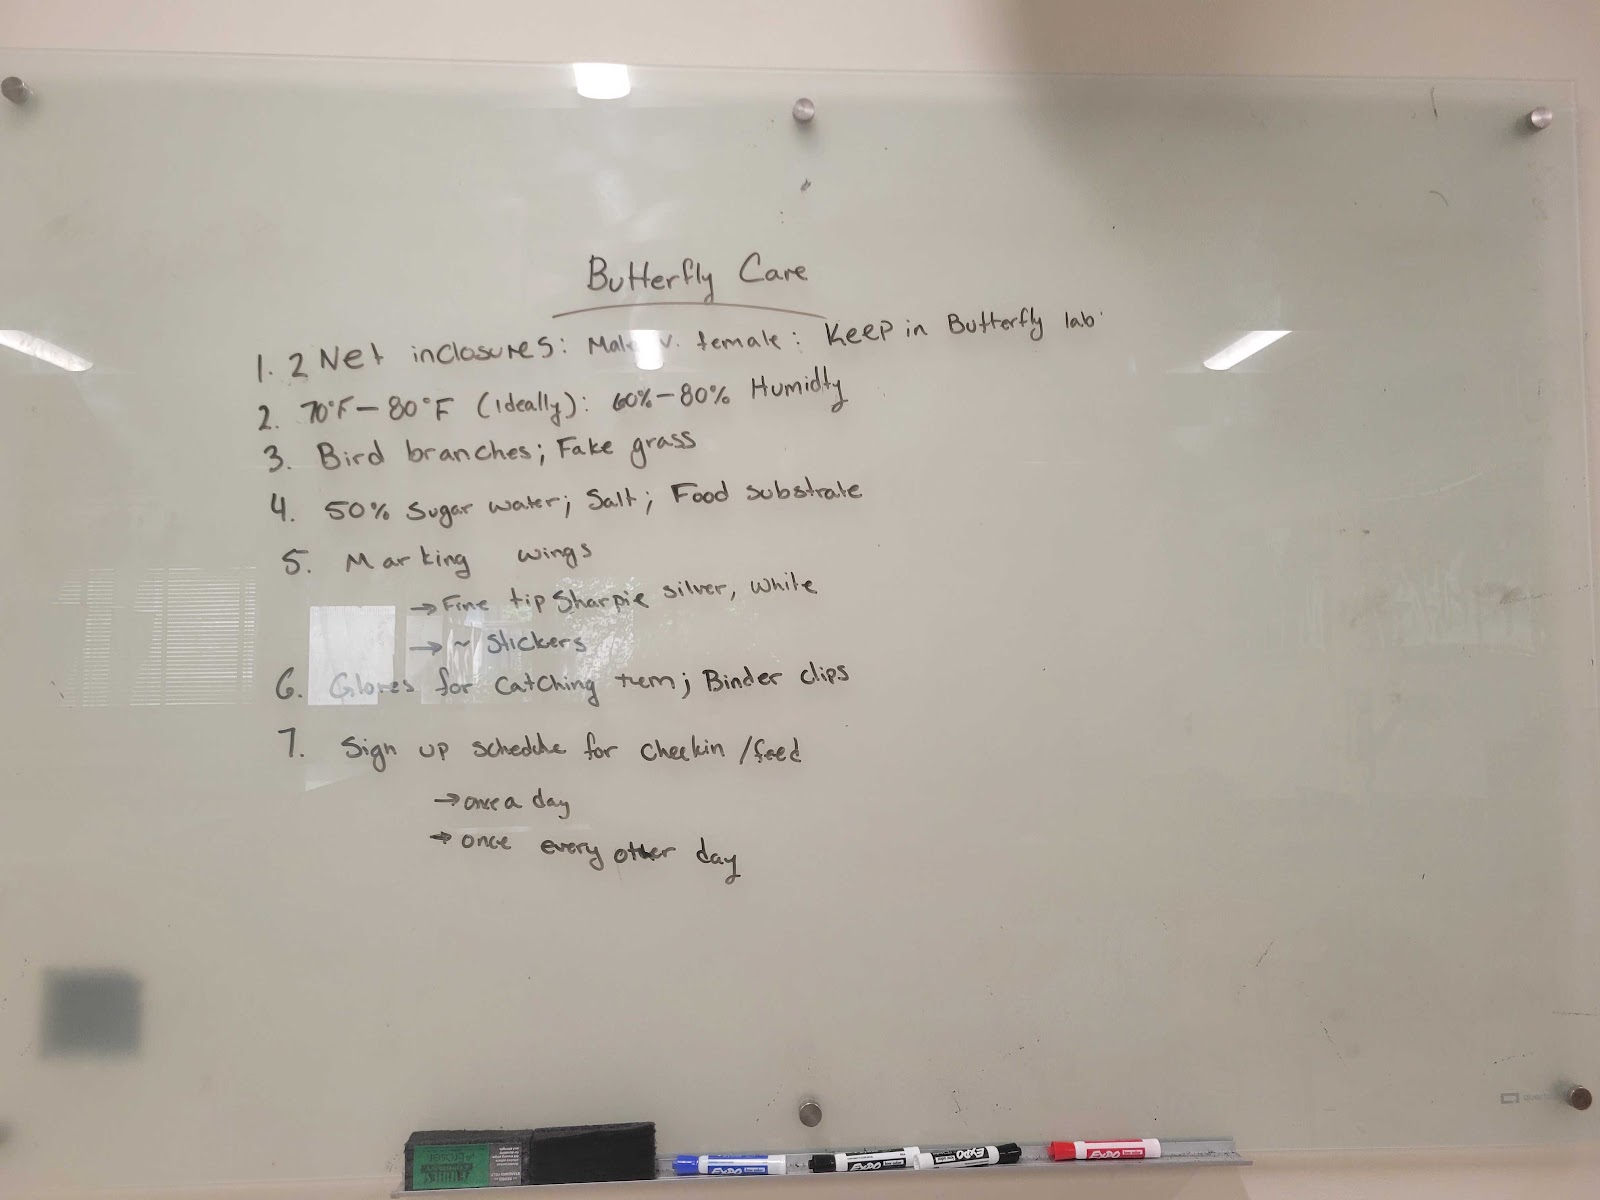 Butterfly Care
1. 2 Net inclosures: Male v. female: Keep in Butterfly lab
2. 70°F - 80°F (ideally): 60% - 80% Humidty
3. Bird branches; Fake grass
4. 50% Sugar water; Salt; Food substrate
5. Marking wings
→ Fine tip Sharpie silver, white
→ ~ Stickers
6. Gloves for catching them; Binder clips
7. Sign up for checkin /feed
→ once a day
→ once every other day
EXPO
EXPO
EXPO
EXPO